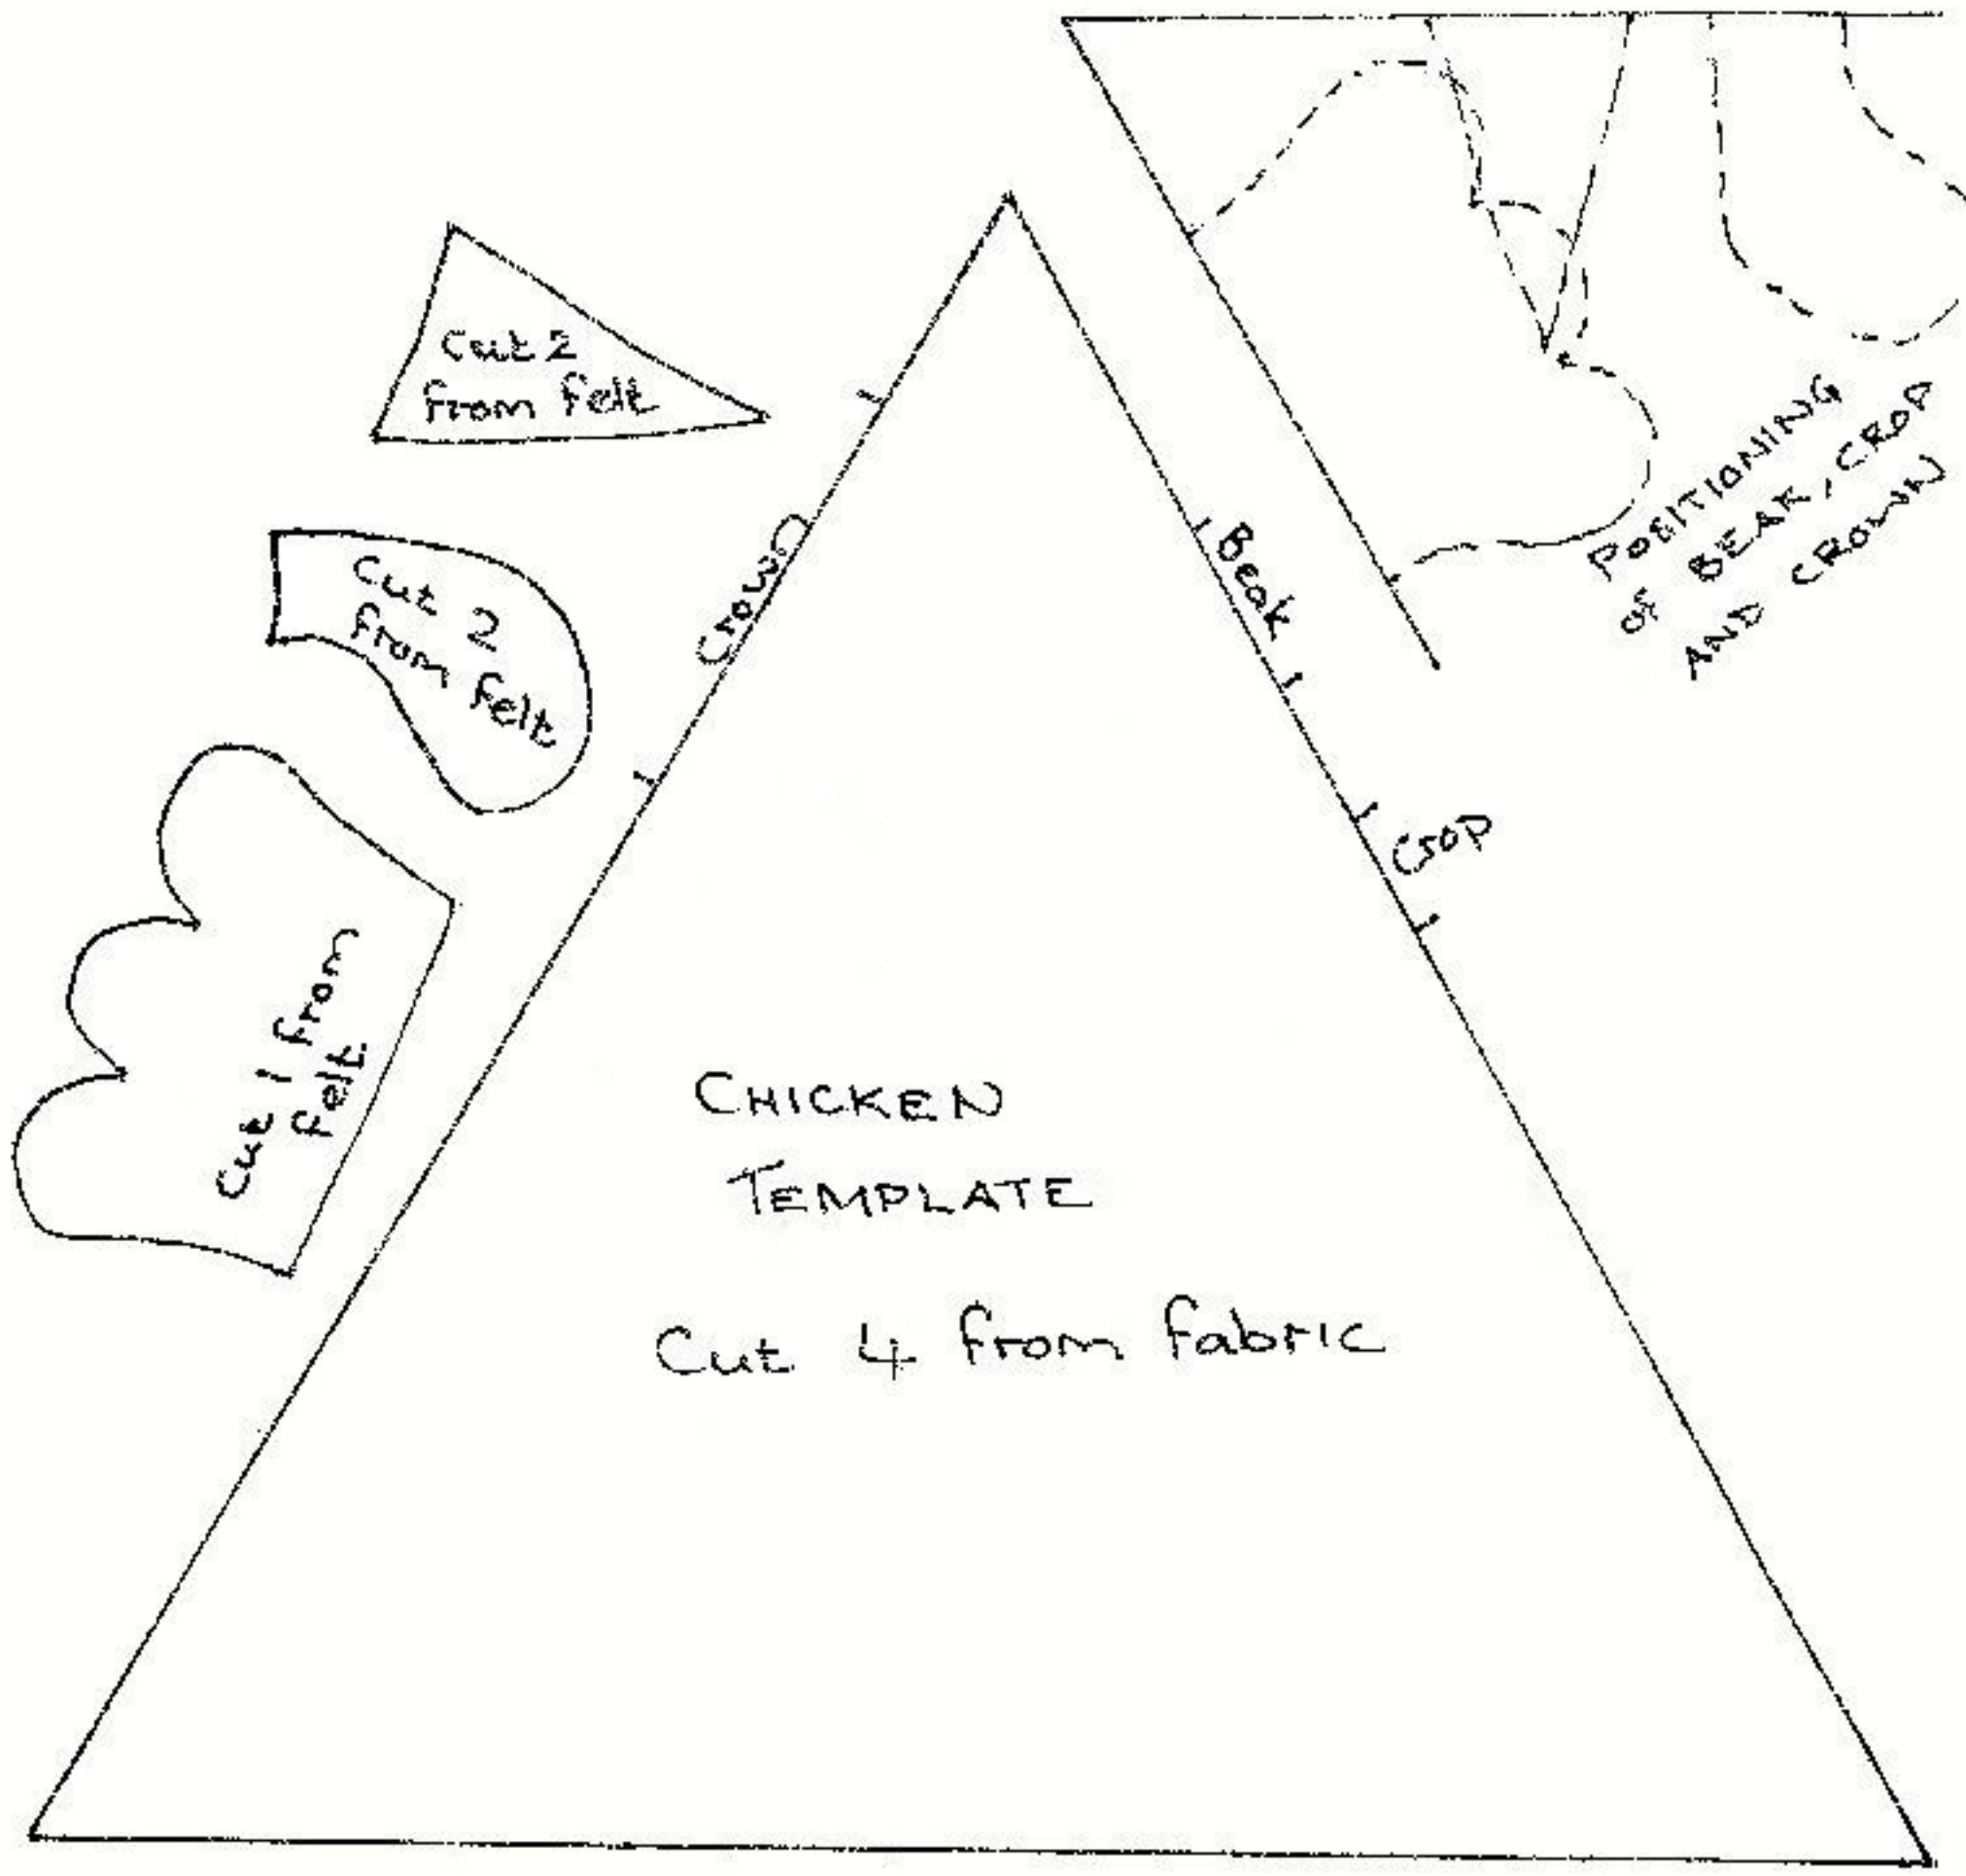 Cut 2
from felt
Cut 2
from felt
Cut 1 from
felt.
Crown
Beak
Crop
POSITIONING
OF BEAK, CROP
AND CROWN
CHICKEN
TEMPLATE
Cut 4 from fabric